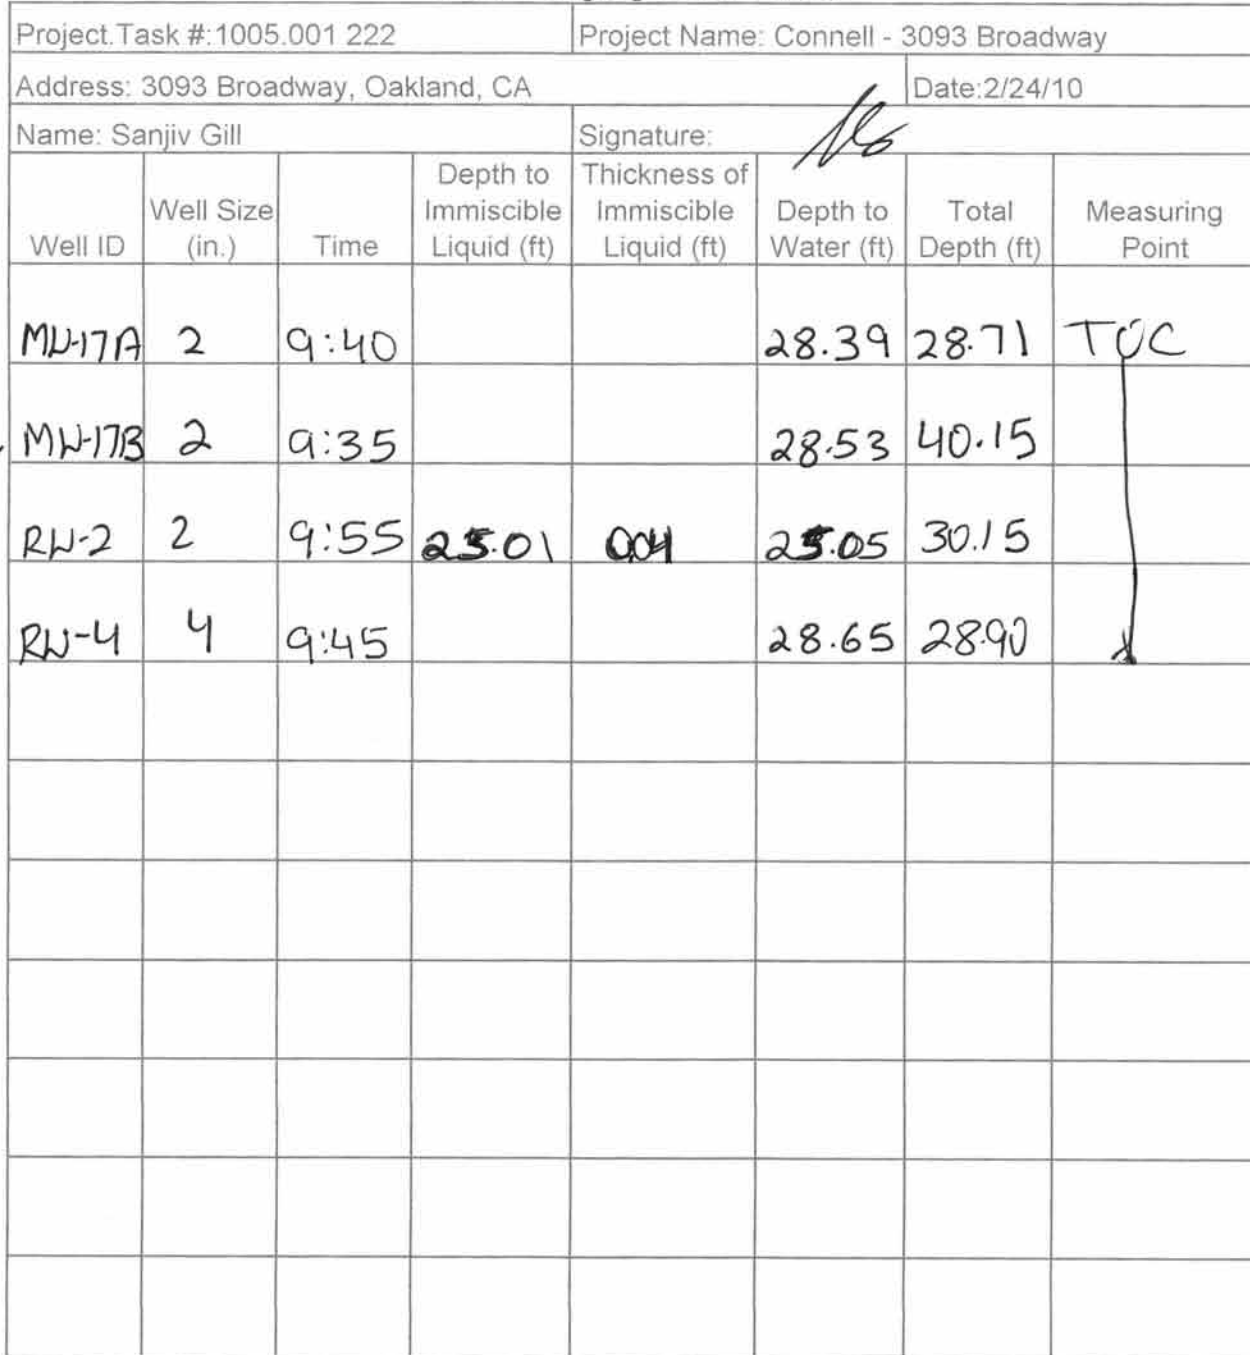 Project.Task #:1005.001 222 Project Name: Connell - 3093 Broadway
Address: 3093 Broadway, Oakland, CA Date:2/24/10
Name: Sanjiv Gill Signature:
Well ID Well Size (in.) Time Depth to Immiscible Liquid (ft) Thickness of Immiscible Liquid (ft) Depth to Water (ft) Total Depth (ft) Measuring Point
MW-17A 2 9:40 28.39 28.71 TOC
MW-17B 2 9:35 28.53 40.15
RW-2 2 9:55 25.01 0.04 25.05 30.15
RW-4 4 9:45 28.65 28.90